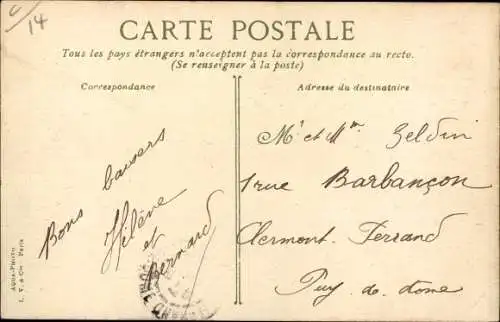 14
CARTE POSTALE
Tous les pays étrangers n'acceptent pas la correspondance au recto.
(Se renseigner à la poste)
Correspondance
Adresse du destinataire
Bons baisers
Hélène
et
Bernard
Mr et Mme Zeldin
1 rue Barbançon
Clermont. Ferrand
Puy. de. dome
AQUA-PHOTO
L. V. & Cie Paris